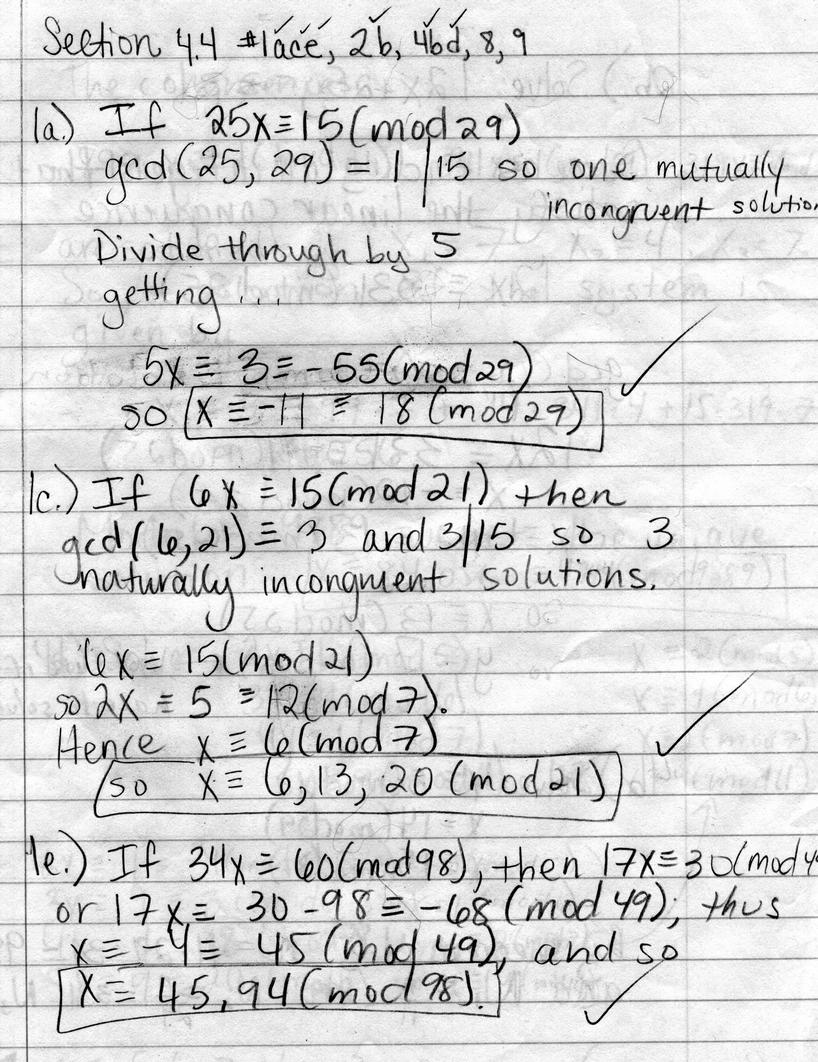 Section 4.4 #1ace, 2b, 4bd, 8, 9
1a.) If 25x≡15(mod 29)
gcd(25, 29) = 1 | 15 so one mutually
incongruent solution
Divide through by 5
getting ...
5x ≡ 3 ≡ -55(mod 29)
so x ≡ -11 ≡ 18 (mod 29)
1c.) If 6x ≡ 15(mod 21) then
gcd(6, 21) ≡ 3 and 3|15 so 3
naturally incongruent solutions.
6x ≡ 15(mod 21)
so 2x ≡ 5 ≡ 12(mod 7).
Hence x ≡ 6(mod 7)
so x ≡ 6, 13, 20 (mod 21)
1e.) If 34x ≡ 60(mod 98), then 17x≡30(mod 4
or 17x ≡ 30 - 98 ≡ -68 (mod 49); thus
x ≡ -4 ≡ 45 (mod 49), and so
x ≡ 45, 94 (mod 98).